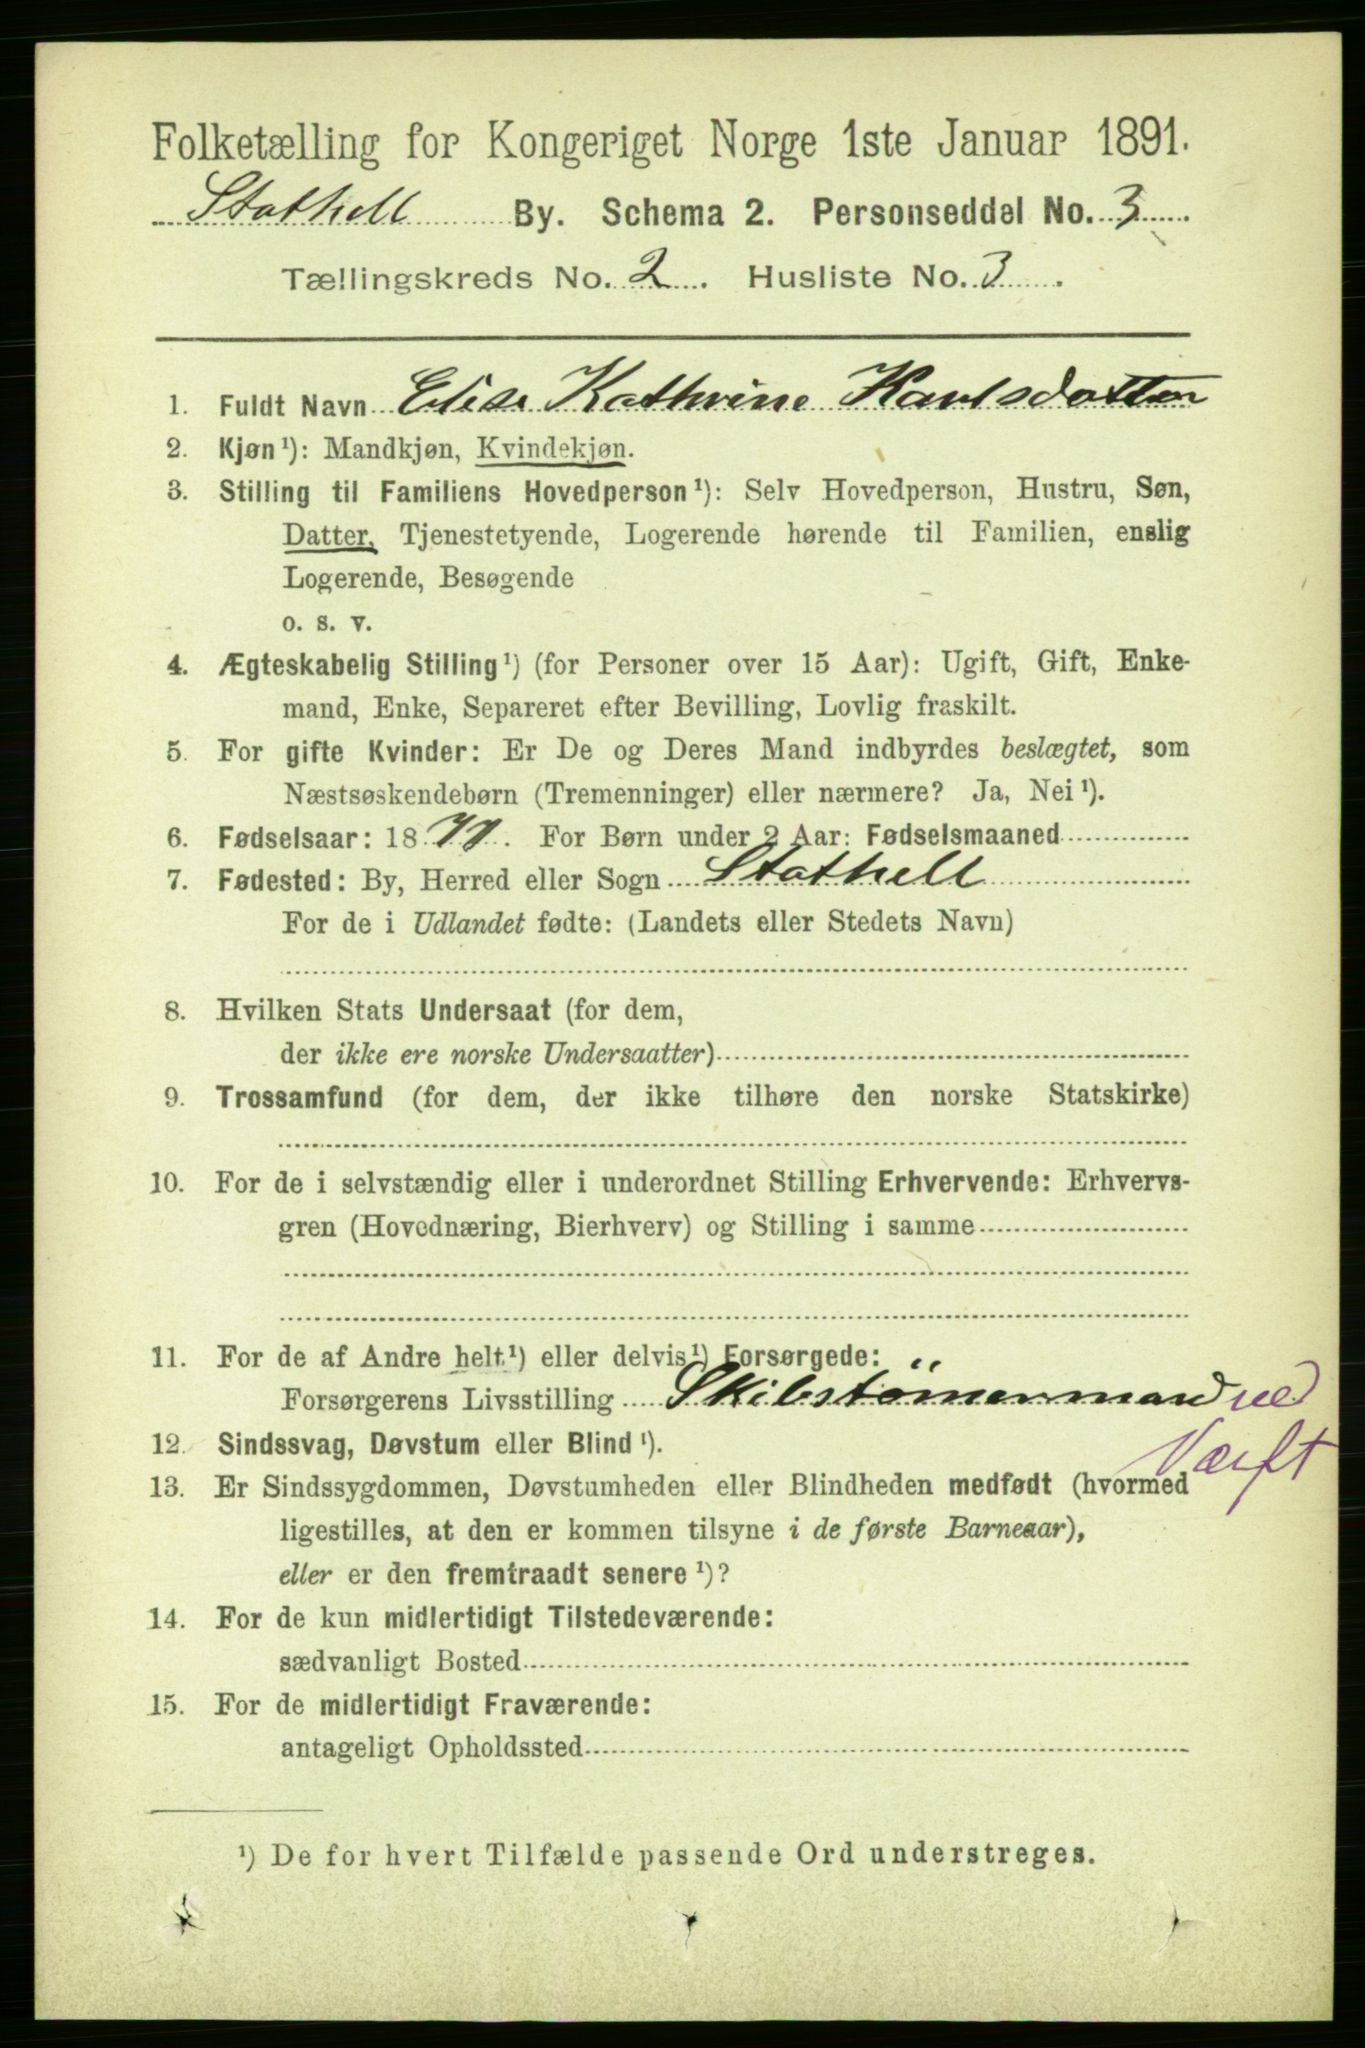 Folketælling for Kongeriget Norge 1ste Januar 1891.
Stathell By. Schema 2. Personseddel No. 3.
Tællingskreds No. 2. Husliste No. 3.
1. Fuldt Navn Elise Kathrine Karlsdatter
2. Kjøn¹): Mandkjøn, Kvindekjøn.
3. Stilling til Familiens Hovedperson¹): Selv Hovedperson, Hustru, Søn,
Datter, Tjenestetyende, Logerende hørende til Familien, enslig
Logerende, Besøgende
o. s. v.
4. Ægteskabelig Stilling¹) (for Personer over 15 Aar): Ugift, Gift, Enke-
mand, Enke, Separeret efter Bevilling, Lovlig fraskilt.
5. For gifte Kvinder: Er De og Deres Mand indbyrdes beslægtet, som
Næstsøskendebørn (Tremenninger) eller nærmere? Ja, Nei¹).
6. Fødselsaar: 18. For Børn under 2 Aar: Fødselsmaaned
7. Fødested: By, Herred eller Sogn Stathell
For de i Udlandet fødte: (Landets eller Stedets Navn)
8. Hvilken Stats Undersaat (for dem,
der ikke ere norske Undersaatter)
9. Trossamfund (for dem, der ikke tilhøre den norske Statskirke)
10. For de i selvstændig eller i underordnet Stilling Erhvervende: Erhvervs-
gren (Hovednæring, Bierhverv) og Stilling i samme
11. For de af Andre helt¹) eller delvis¹) Forsørgede:
Forsørgerens Livsstilling Skibstömermand ved
Værft
12. Sindssvag, Døvstum eller Blind¹).
13. Er Sindssygdommen, Døvstumheden eller Blindheden medfødt (hvormed
ligestilles, at den er kommen tilsyne i de første Barneaar),
eller er den fremtraadt senere¹)?
14. For de kun midlertidigt Tilstedeværende:
sædvanligt Bosted
15. For de midlertidigt Fraværende:
antageligt Opholdssted
¹) De for hvert Tilfælde passende Ord understreges.